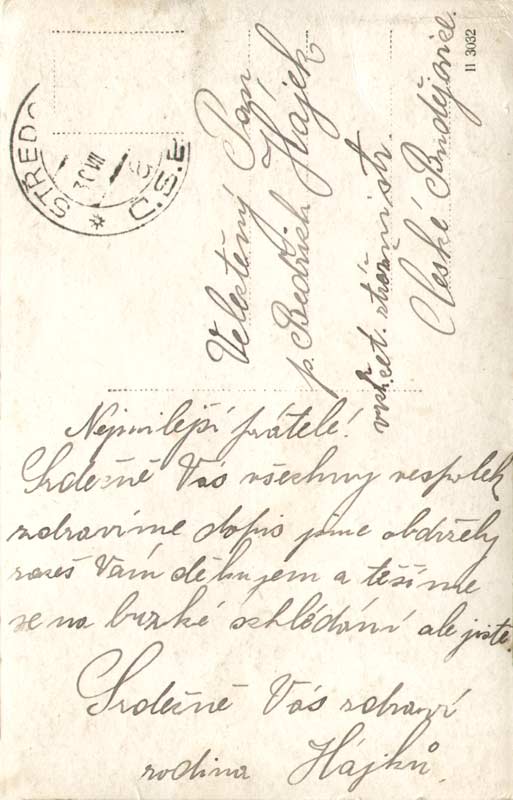 STŘEDO
30 VII
Č.S.E
II 3032
Velectěný Pan
p. Bedřich Hájek
vrch. čet. strážmistr.
České Budějovice.
Nejmilejší přátelé!
Srdečně Vás všechny vespolek
zdravíme dopis jsme obdržely
Vám děkujem a těšíme
se na brzké schlédání ale jistě.
Srdečně Vás zdraví
rodina Hájků